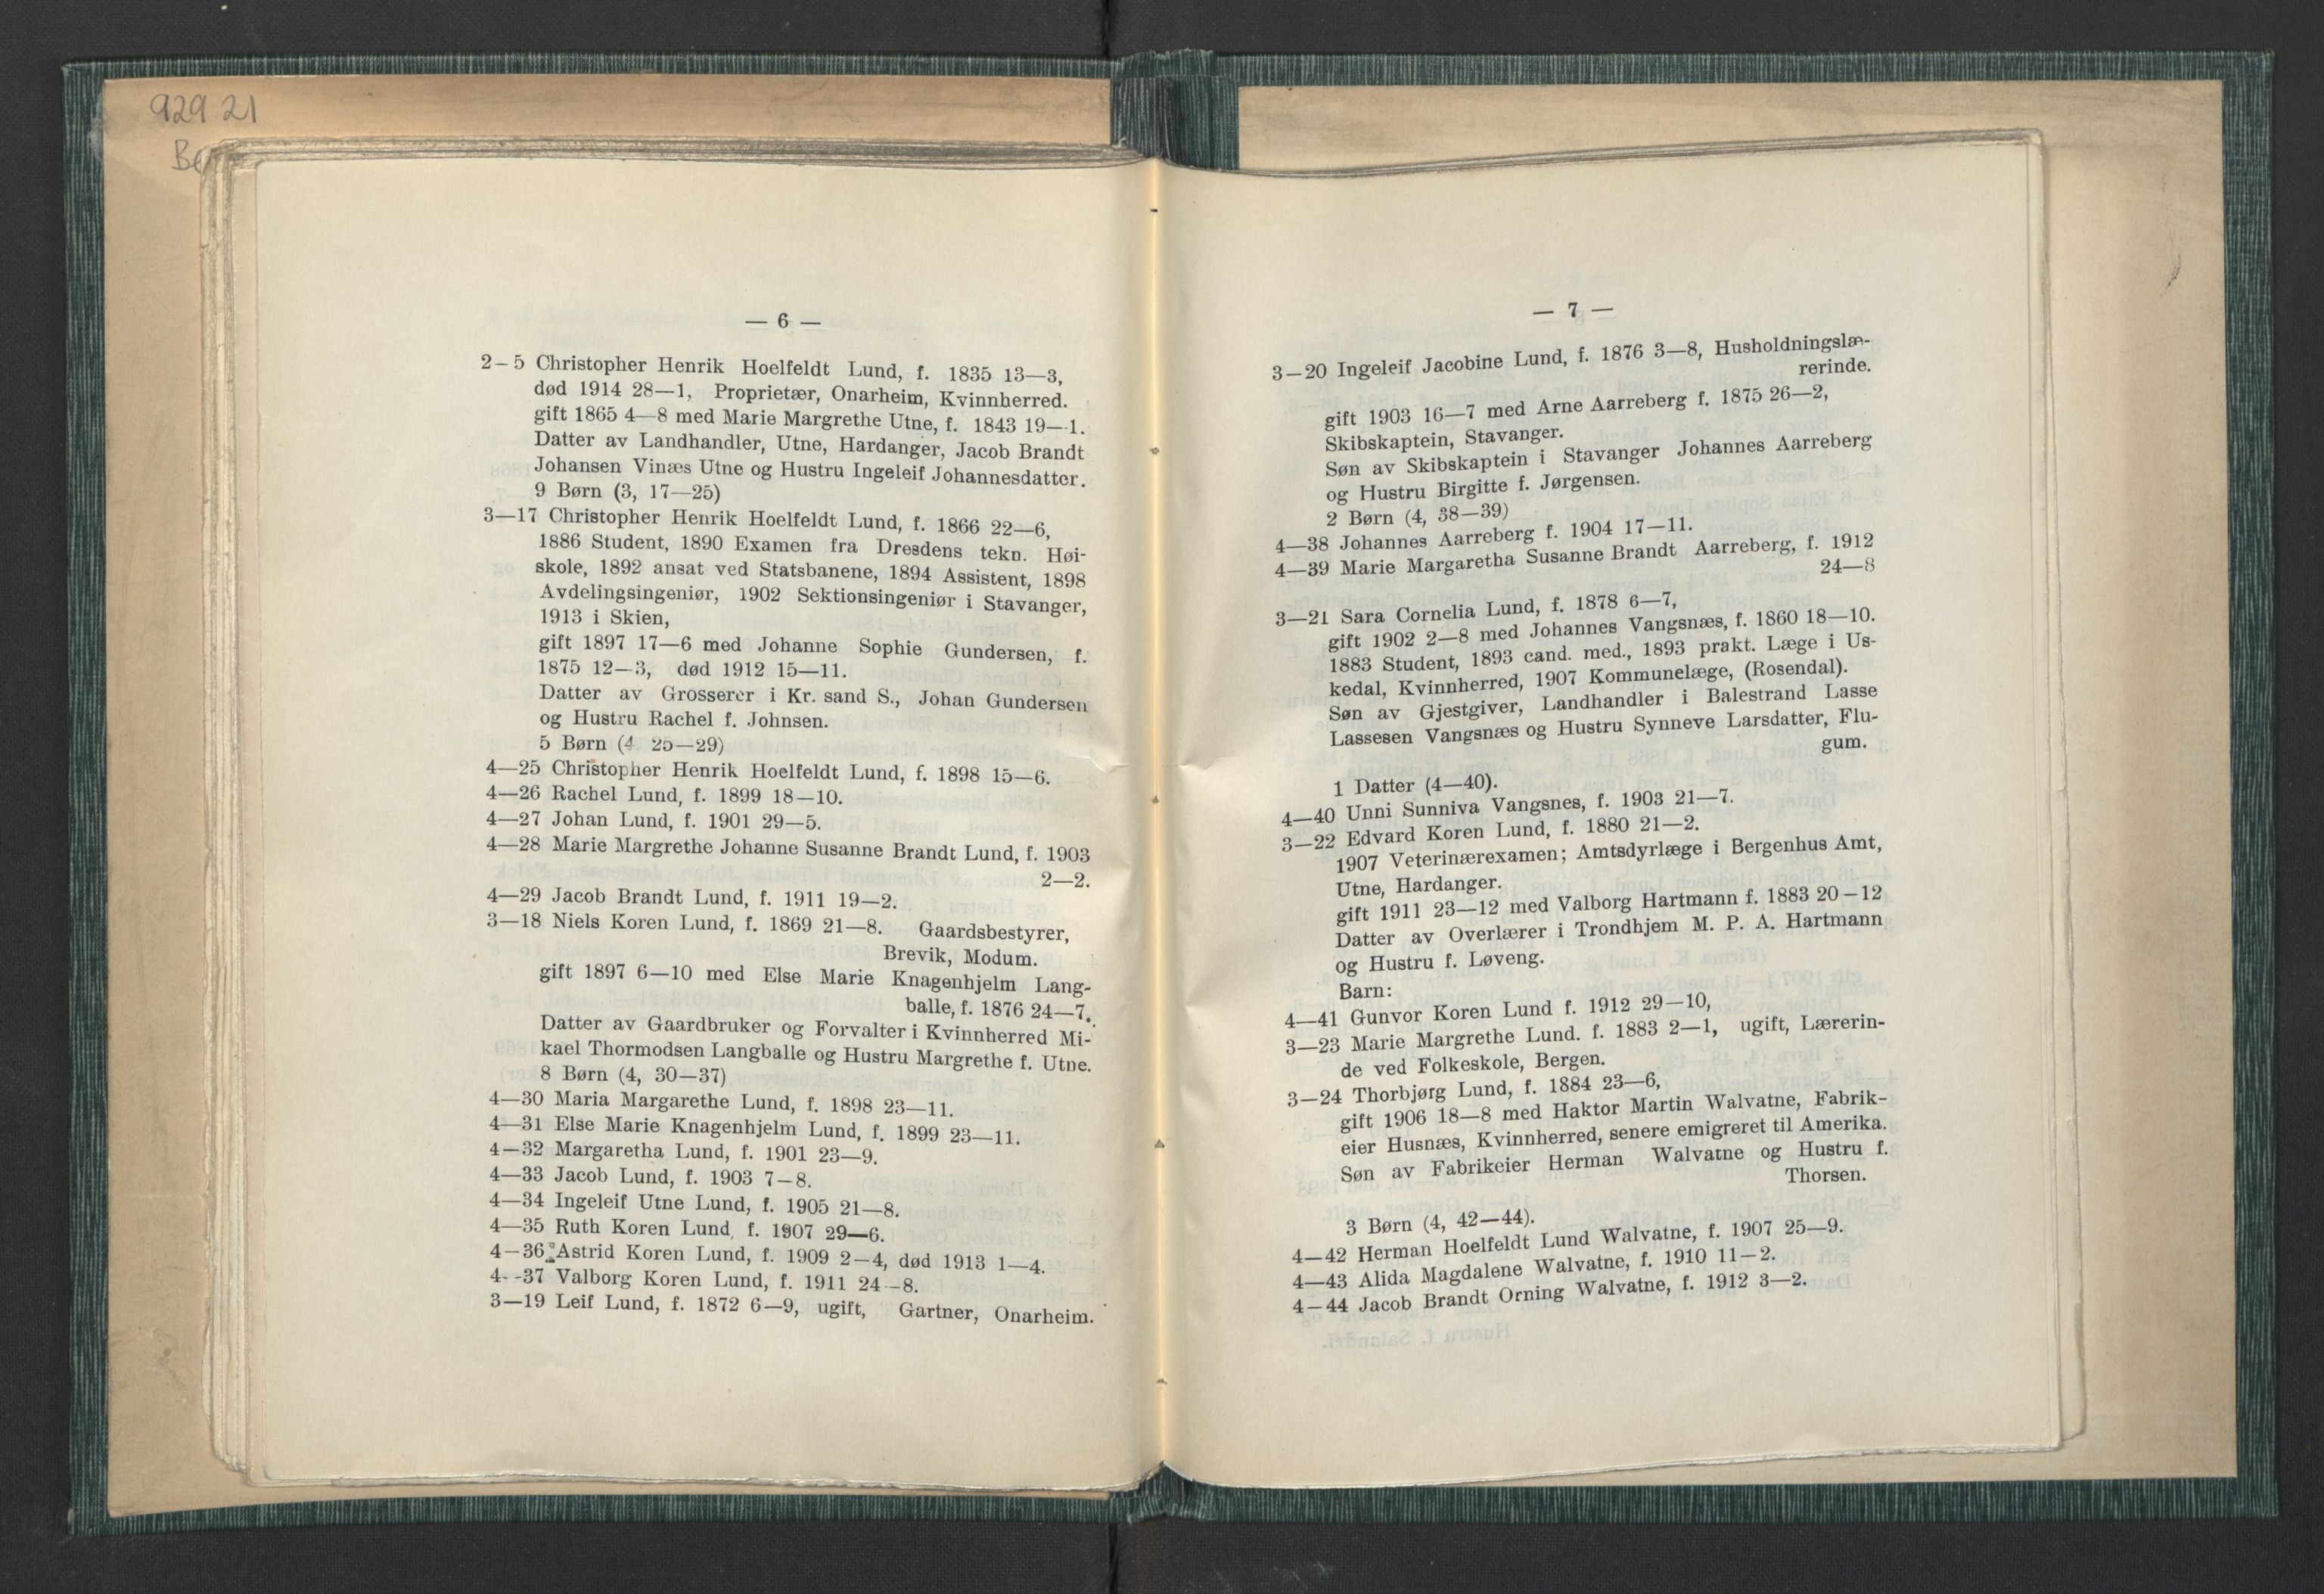 929 21
— 6 —
2–5 Christopher Henrik Hoelfeldt Lund, f. 1835 13—3,
død 1914 28—1, Proprietær, Onarheim, Kvinnherred.
gift 1865 4—8 med Marie Margrethe Utne, f. 1843 19—1.
Datter av Landhandler, Utne, Hardanger, Jacob Brandt
Johansen Vinæs Utne og Hustru Ingeleif Johannesdatter.
9 Børn (3, 17—25)
3—17 Christopher Henrik Hoelfeldt Lund, f. 1866 22—6,
1886 Student, 1890 Examen fra Dresdens tekn. Høi-
skole, 1892 ansat ved Statsbanene, 1894 Assistent, 1898
Avdelingsingeniør, 1902 Sektionsingeniør i Stavanger,
1913 i Skien,
gift 1897 17—6 med Johanne Sophie Gundersen, f.
1875 12—3, død 1912 15—11.
Datter av Grosserer i Kr. sand S., Johan Gundersen
og Hustru Rachel f. Johnsen.
5 Børn (4 25—29)
4—25 Christopher Henrik Hoelfeldt Lund, f. 1898 15—6.
4—26 Rachel Lund, f. 1899 18—10.
4—27 Johan Lund, f. 1901 29—5.
4—28 Marie Margrethe Johanne Susanne Brandt Lund, f. 1903
2—2.
4—29 Jacob Brandt Lund, f. 1911 19—2.
3—18 Niels Koren Lund, f. 1869 21—8. Gaardsbestyrer,
Brevik, Modum.
gift 1897 6—10 med Else Marie Knagenhjelm Lang-
balle, f. 1876 24—7.
Datter av Gaardbruker og Forvalter i Kvinnherred Mi-
kael Thormodsen Langballe og Hustru Margrethe f. Utne.
8 Børn (4, 30—37)
4—30 Maria Margarethe Lund, f. 1898 23—11.
4—31 Else Marie Knagenhjelm Lund, f. 1899 23—11.
4—32 Margaretha Lund, f. 1901 23—9.
4—33 Jacob Lund, f. 1903 7—8.
4—34 Ingeleif Utne Lund, f. 1905 21—8.
4—35 Ruth Koren Lund, f. 1907 29—6.
4—36 Astrid Koren Lund, f. 1909 2—4, død 1913 1—4.
4--37 Valborg Koren Lund, f. 1911 24—8.
3—19 Leif Lund, f. 1872 6—9, ugift, Gartner, Onarheim.
— 7 —
3—20 Ingeleif Jacobine Lund, f. 1876 3—8, Husholdningslæ-
rerinde.
gift 1903 16—7 med Arne Aarreberg f. 1875 26—2,
Skibskaptein, Stavanger.
Søn av Skibskaptein i Stavanger Johannes Aarreberg
og Hustru Birgitte f. Jørgensen.
2 Børn (4, 38—39)
4—38 Johannes Aarreberg f. 1904 17—11.
4—39 Marie Margaretha Susanne Brandt Aarreberg, f. 1912
24—8
3—21 Sara Cornelia Lund, f. 1878 6—7,
gift 1902 2—8 med Johannes Vangsnæs, f. 1860 18—10.
1883 Student, 1893 cand. med., 1893 prakt. Læge i Us-
kedal, Kvinnherred, 1907 Kommunelæge, (Rosendal).
Søn av Gjestgiver, Landhandler i Balestrand Lasse
Lassesen Vangsnæs og Hustru Synneve Larsdatter, Flu-
gum.
1 Datter (4—40).
4—40 Unni Sunniva Vangsnes, f. 1903 21—7.
3—22 Edvard Koren Lund, f. 1880 21—2.
1907 Veterinærexamen; Amtsdyrlæge i Bergenhus Amt,
Utne, Hardanger.
gift 1911 23—12 med Valborg Hartmann f. 1883 20—12
Datter av Overlærer i Trondhjem M. P. A. Hartmann
og Hustru f. Løveng.
Barn:
4—41 Gunvor Koren Lund f. 1912 29—10,
3—23 Marie Margrethe Lund. f. 1883 2—1, ugift, Lærerin-
de ved Folkeskole, Bergen.
3—24 Thorbjørg Lund, f. 1884 23—6,
gift 1906 18—8 med Haktor Martin Walvatne, Fabrik-
eier Husnæs, Kvinnherred, senere emigreret til Amerika.
Søn av Fabrikeier Herman Walvatne og Hustru f.
Thorsen.
3 Børn (4, 42—44).
4—42 Herman Hoelfeldt Lund Walvatne, f. 1907 25—9.
4—43 Alida Magdalene Walvatne, f. 1910 11—2.
4—44 Jacob Brandt Orning Walvatne, f. 1912 3—2.